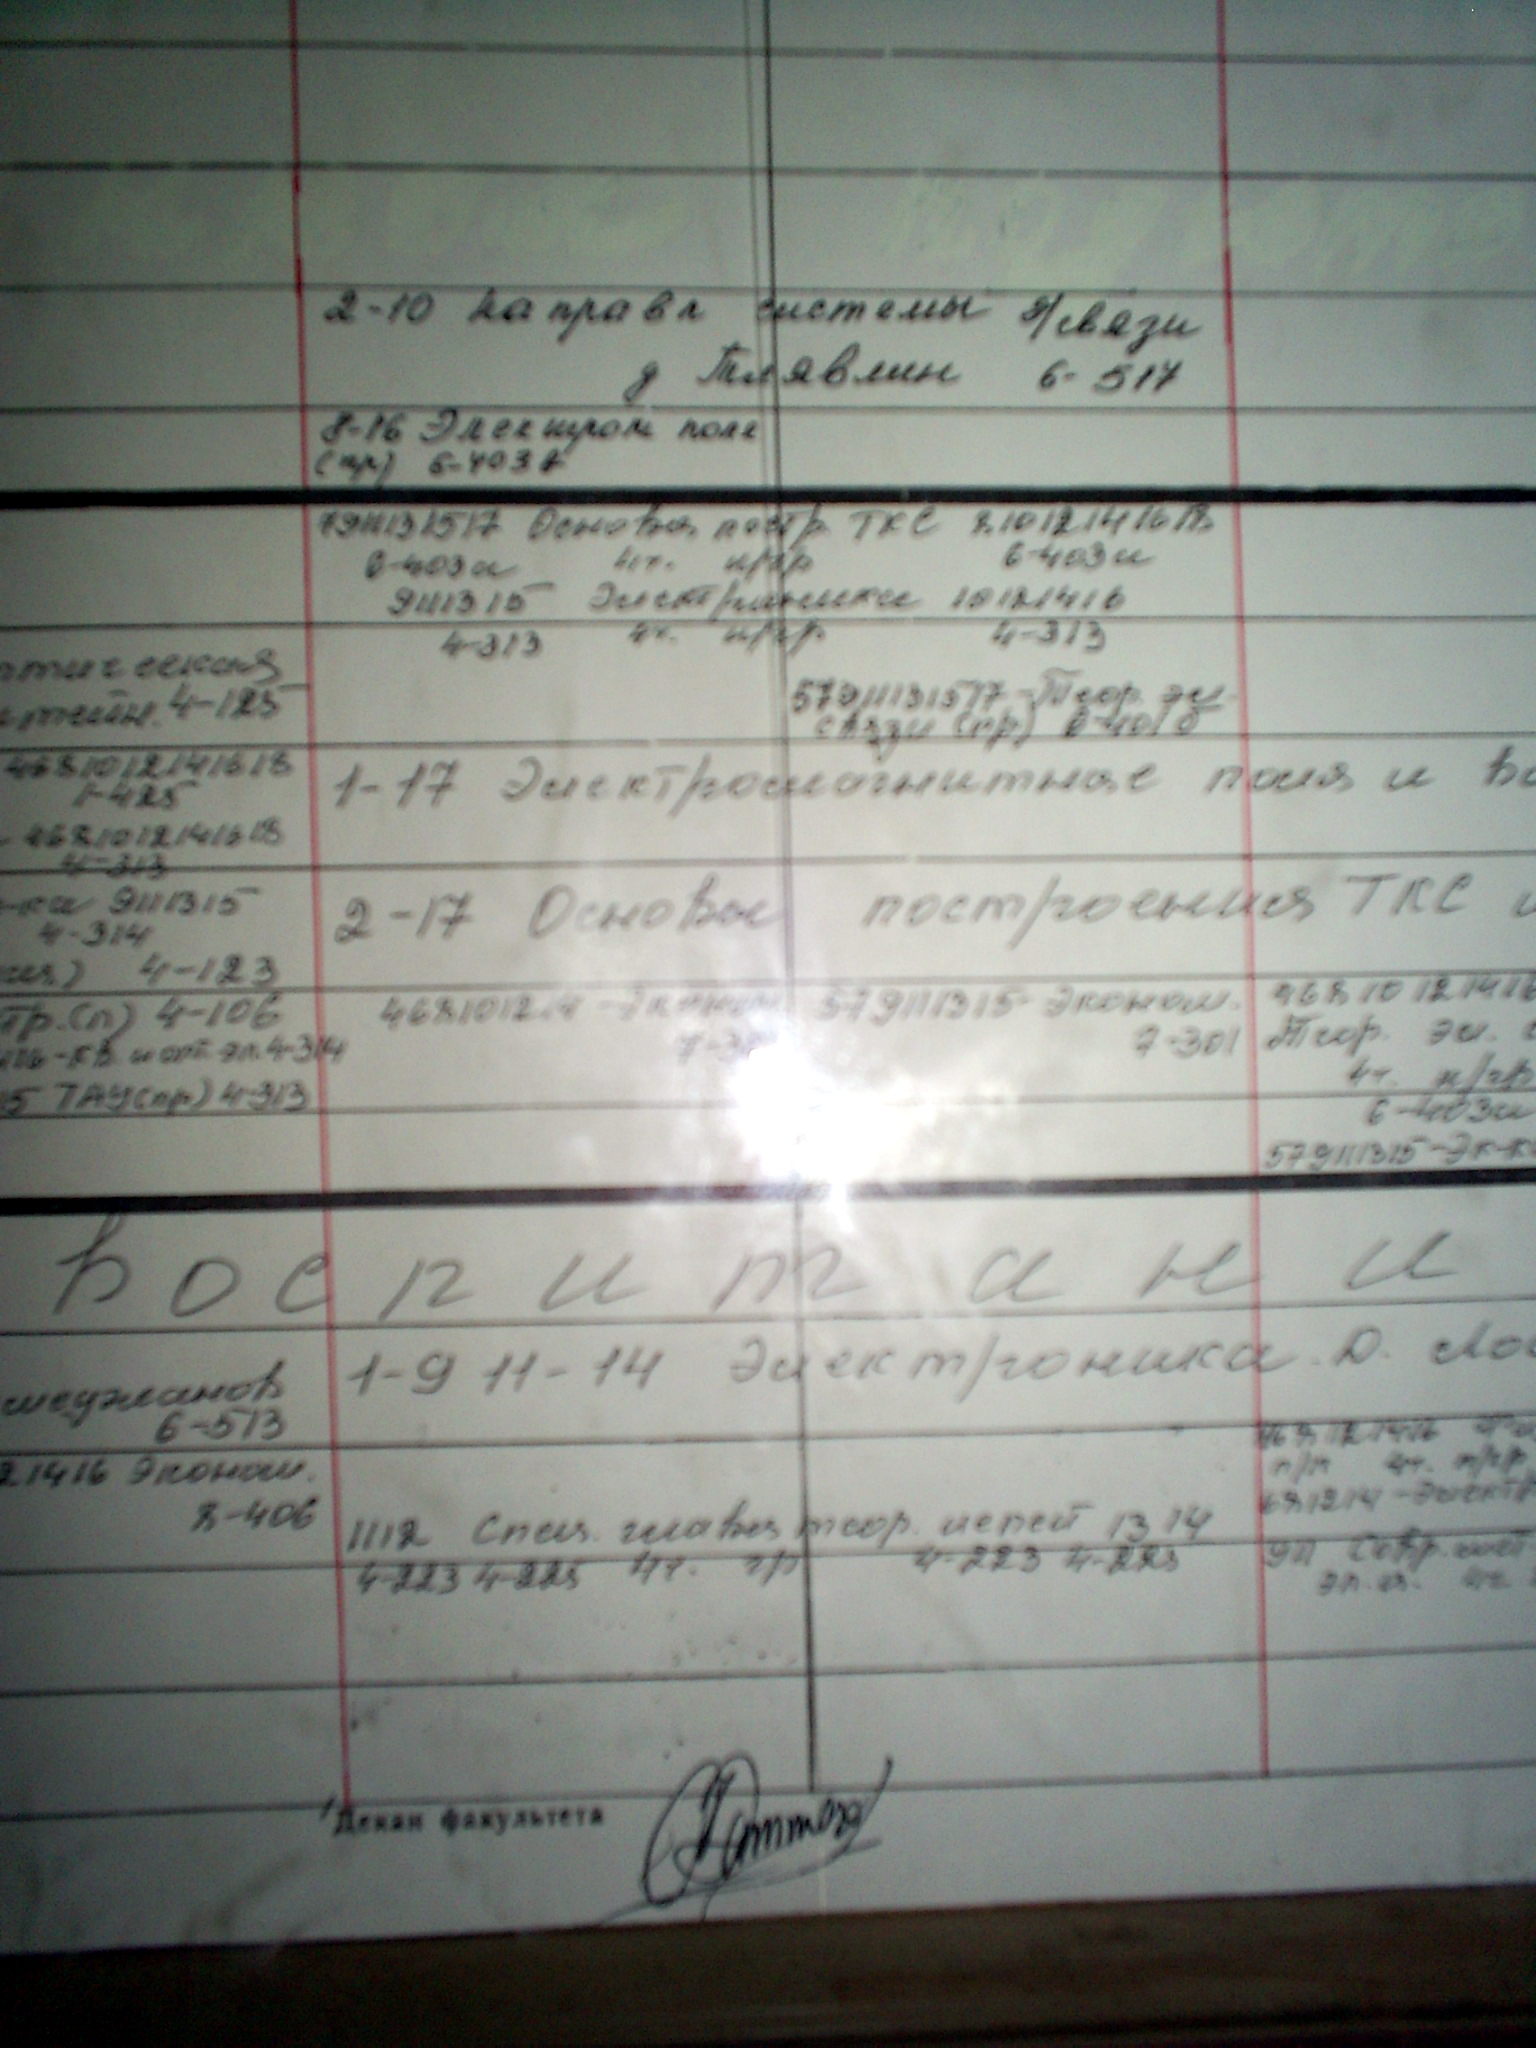 2-10 Направл системы э/связи
д Тлявлин 6-517
8-16 Электром поля
(пр) 6-403
7 9 11 13 15 17 Основы постр. ТКС 8 10 12 14 16 18
6-403и 4ч. п/гр 6-403и
9 11 13 15 Электроника 10 12 14 16
4-313 4ч. п/гр 4-313
4-125
5 7 9 11 13 15 17 - Теор. эл.
связи (пр) 6-401б
4 6 8 10 12 14 16 18
1-425
1-17 Электромагнитные поля и во
4 6 8 10 12 14 16 18
4-313
9 11 13 15
4-314
2-17 Основы построения ТКС и
4-123
тр.(п) 4-106
4-314
5 ТАУ(пр) 4-313
4 6 8 10 12 14 - Эконом
5 7 9 11 13 15 - Эконом.
7-301
4 6 8 10 12 14 16
Теор. эл. с
4ч. п/гр
6-403и
5 7 9 11 13 15 - Эк-к
В о с п и т а н и
6-513
1-9 11-14 Электроника. Д. Лос
2 14 16 Эконом.
8-406
11 12 Спец. главы теор. цепей 13 14
4-223 4-225 4ч. гр 4-223 4-225
4 6 8 12 14 16
п/п 4ч. п/гр
6 8 12 14 - Электр
9 11 Совр. ист
эл. п. 4ч.
Декан факультета